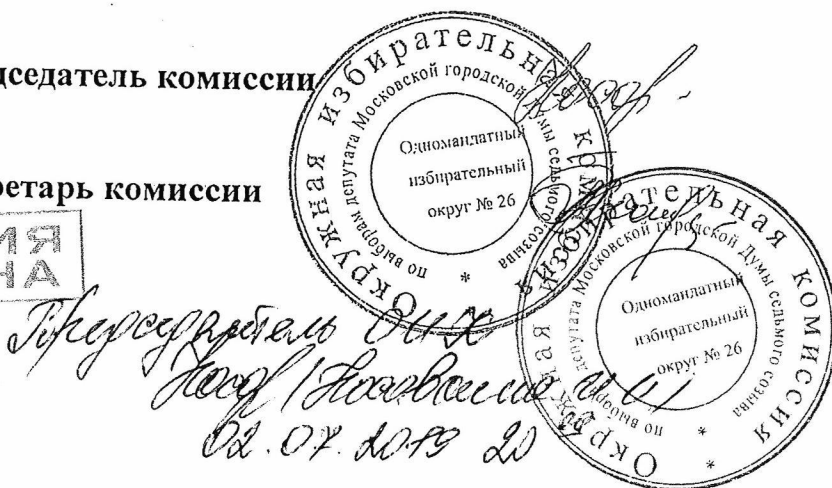 дседатель комиссии
ретарь комиссии
Окружная избирательная комиссия
по выборам депутата Московской городской Думы седьмого созыва
Одномандатный
избирательный
округ № 26
*
Окружная избирательная комиссия
по выборам депутата Московской городской Думы седьмого созыва
Одномандатный
избирательный
округ № 26
* *
Председатель ОИК
02.07.2019 20